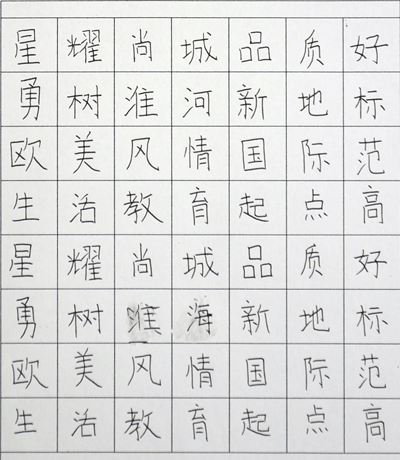 星耀尚城品质好
勇树淮河新地标
欧美风情国际范
生活教育起点高
星耀尚城品质好
勇树淮海新地标
欧美风情国际范
生活教育起点高